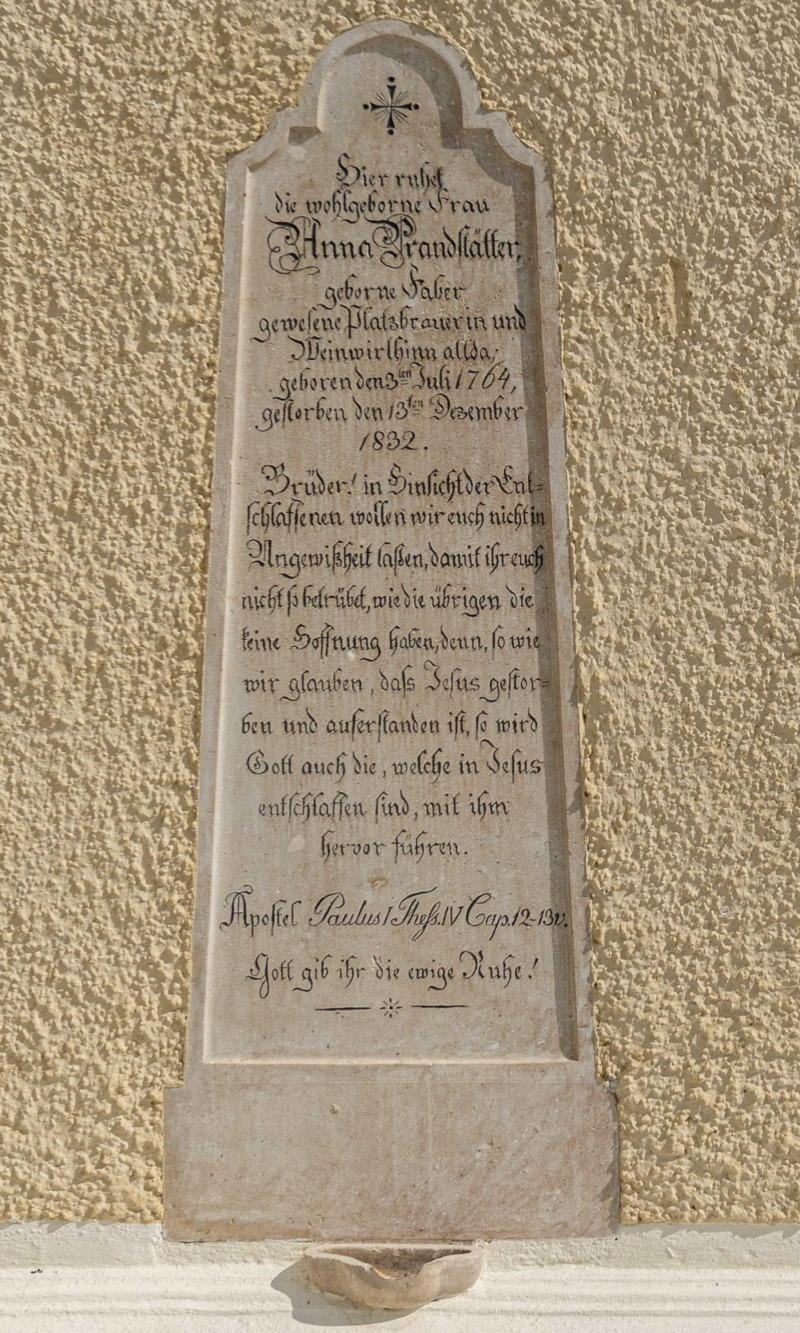 Hier ruhet
die wohlgeborne Frau
Anna Prandstätter,
geborne Faber
gewesene Platzbrauerin und
Weinwirthinn allda,
geboren den 3ten Juli 1764,
gestorben den 13ten Dezember
1832.
Brüder! in Hinsicht der Ent=
schlaffenen wollen wir euch nicht in
Ungewißheit laßen, damit ihr euch
nicht so betrübet, wie die übrigen die
keine Hoffnung haben, denn, so wie
wir glauben, daß Jesus gestor=
ben und auferstanden ist, so wird
Gott auch die, welche in Jesus
entschlaffen sind, mit ihm
hervor führen.
Apostel Paulus I Theß. IV Cap. 12-13v.
Gott gib ihr die ewige Ruhe!